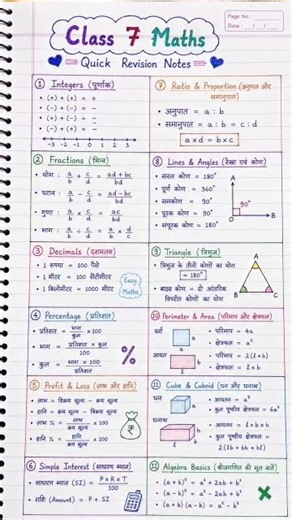 Page No.
Date
Class 7 Maths
Quick Revision Notes
① Integers (पूर्णांक)
• (+) + (+) = +
• (-) + (-) = -
• (+) - (-) = +
• (-) - (+) = -
-3 -2 -1 0 1 2 3
② Fractions (भिन्न)
• योग : a/b + c/d = ad + bc/bd
• घटाव : a/b - c/d = ad - bc/bd
• गुणा : a/b × c/d = ac/bd
• भाग : a/b ÷ c/d = a/b × d/c
③ Decimals (दशमलव)
• 1 रुपया = 100 पैसे
• 1 मीटर = 100 सेंटीमीटर
• 1 किलोमीटर = 1000 मीटर
Easy
Maths
④ Percentage (प्रतिशत)
• प्रतिशत = भाग/कुल × 100
• भाग = प्रतिशत × कुल/100
• कुल = भाग/प्रतिशत × 100
%
⑤ Profit & Loss (लाभ और हानि)
• लाभ = विक्रय मूल्य - क्रय मूल्य
• हानि = क्रय मूल्य - विक्रय मूल्य
• लाभ % = लाभ/क्रय मूल्य × 100
• हानि % = हानि/क्रय मूल्य × 100
₹
⑥ Simple Interest (साधारण ब्याज)
• साधारण ब्याज (SI) = P×R×T/100
• राशि (Amount) = P + SI
⑦ Ratio & Proportion (अनुपात और
समानुपात)
• अनुपात = a : b
• समानुपात = a : b = c : d
a×d = b×c
⑧ Lines & Angles (रेखा एवं कोण)
• सरल कोण = 180°
• पूर्ण कोण = 360°
• समकोण = 90°
• पूरक कोण = 90°
• संपूरक कोण = 180°
A
90°
O
B
⑨ Triangle (त्रिभुज)
• त्रिभुज के तीनों कोणों का योग
= 180°
• बाह्य कोण = दो आंतरिक
विपरीत कोणों का योग
A
B
C
⑩ Perimeter & Area (परिमाप और क्षेत्रफल)
वर्ग
a
• परिमाप = 4a
• क्षेत्रफल = a²
आयत
b
l
• परिमाप = 2(l+b)
• क्षेत्रफल = l×b
⑪ Cube & Cuboid (घन और घनाभ)
घन
a
• आयतन = a³
• कुल पृष्ठीय क्षेत्रफल = 6a²
घनाभ
h
b
l
• आयतन = l×b×h
• कुल पृष्ठीय क्षेत्रफल =
2(lb + bh + hl)
⑫ Algebra Basics (बीजगणित की मूल बातें)
• (a+b)² = a² + 2ab + b²
• (a-b)² = a² - 2ab + b²
• (a+b)(a-b) = a² - b²